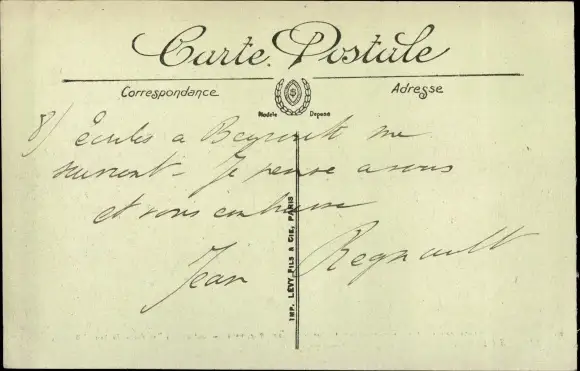 Carte Postale
Correspondance
Adresse
Modèle Déposé
8) Écrivez a Beyrouth me
suivent - Je pense a vous
et vous embrasse
Jean Regnault
IMP. LÉVY FILS & CIE, PARIS